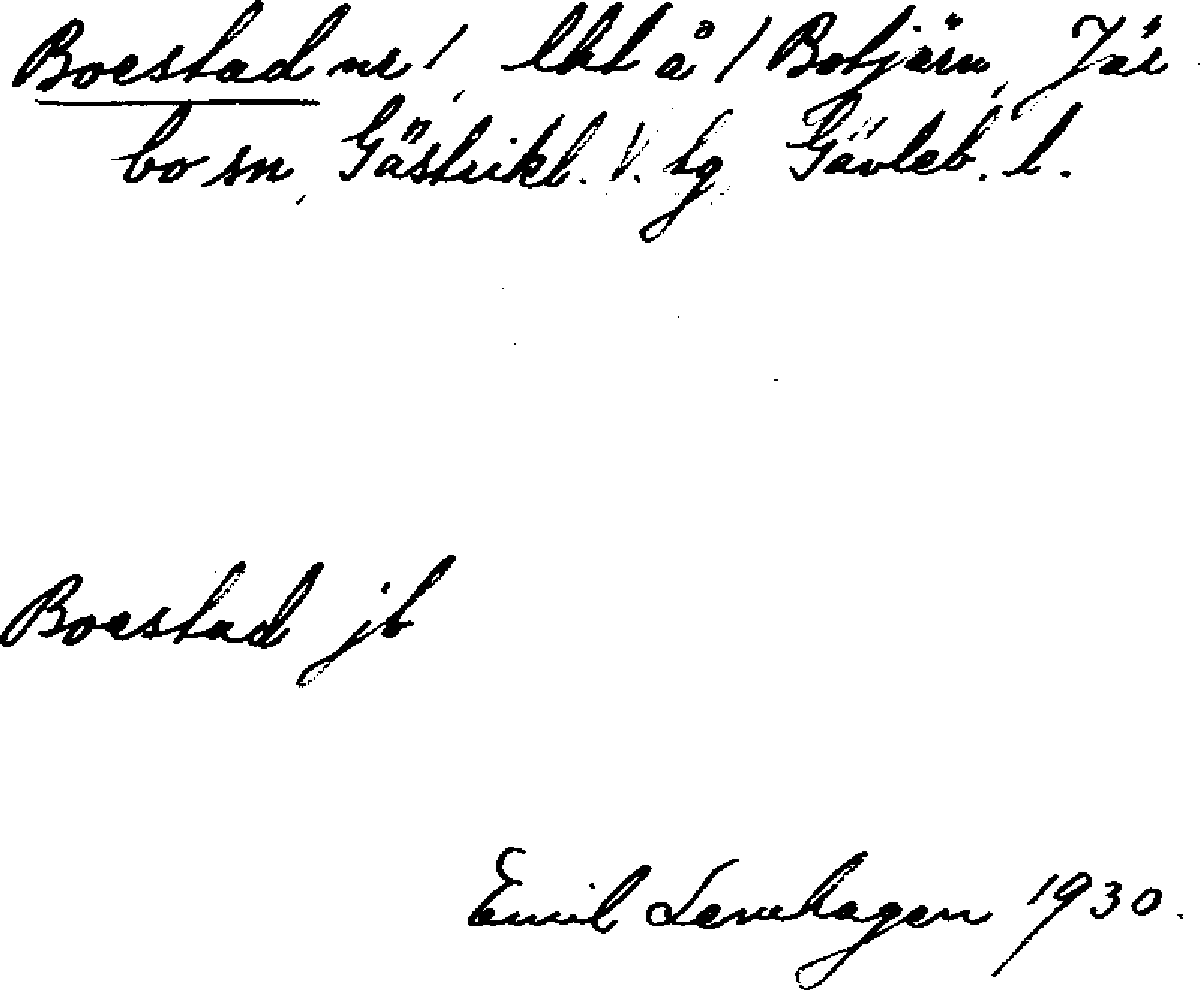 Boestad nr 1, lht å / Botjärn, Jär-
bo sn, Gästrikl. V. tg Gävleb. l.
Boestad jb
Emil Levhagen 1930.